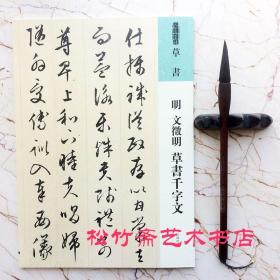 草書
明 文徵明 草書千字文
仕攝職從政存以甘棠去
而益詠樂殊貴賤禮別
尊卑上和下睦夫唱婦
隨外受傅訓入奉母儀
松竹斋艺术书店